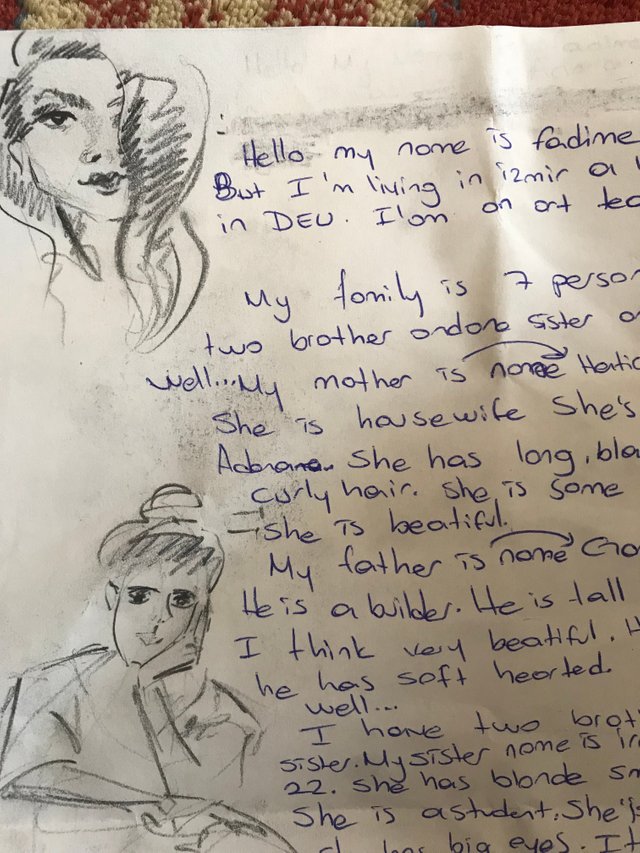 Hello my name is fadime
But I'm living in izmir a
in DEU. I'am an art tea
My family is 7 person
two brother andone sister
well...My mother is name Hatic
She is housewife She's
Adanane. She has long, bla
curly hair. She is some
she is beatiful.
My father is name
He is a builder. He is tall
I think very beatiful. H
he has soft hearted.
well...
I have two brot
sister. My sister name is
22. she has blonde sm
She is astudent. She's
has big eyes. I